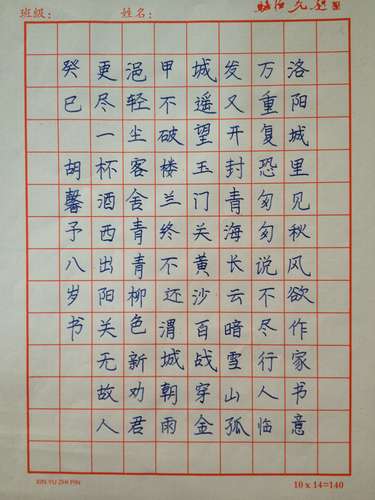 班级：
姓名：
洛阳城里见秋风欲作家书意
万重复恐匆匆说不尽行人临
发又开封青海长云暗雪山孤
城遥望玉门关黄沙百战穿金
甲不破楼兰终不还渭城朝雨
浥轻尘客舍青青柳色新劝君
更尽一杯酒西出阳关无故人
癸巳 胡馨予八岁书
XIN YU ZHI PIN
10 x 14=140